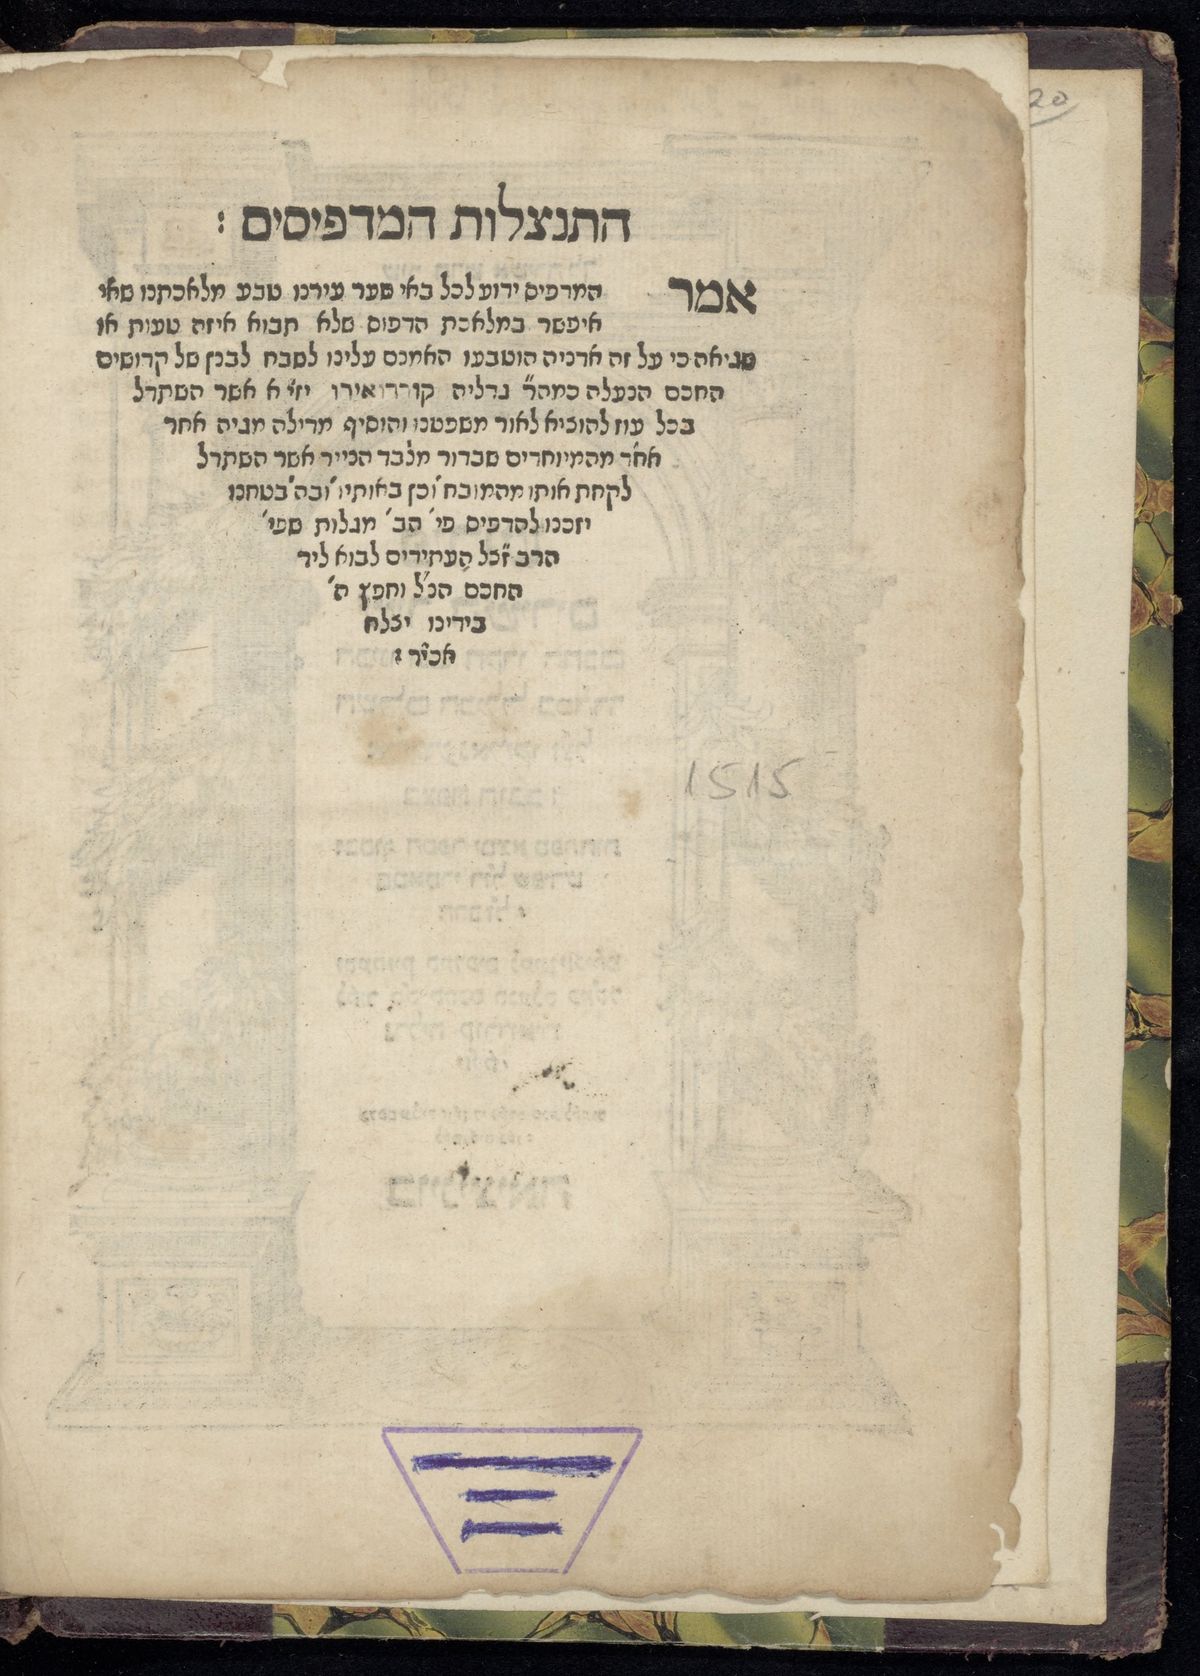 התנצלות המדפיסים :
אמר המדפיס ידוע לכל באי שער עירנו טבע מלאכתנו שאי
איפשר במלאכת הדפוס שלא תבוא איזה טעות או
שגיאה כי על זה אדניה הוטבעו האמנם עלינו לשבח לבנן של קדושים
החכם הנעלה כמה״ר גדליה קורדואירו יזי״א אשר השתדל
בכל עוז להוציא לאור משפטנו והוסיף מדילה מגיה אחר
אחר מהמיוחדים שבדור מלבד הנייר אשר השתדל
לקחת אותו מהמובח׳ וכן באותיו׳ ובה׳ בטחנו
יזכנו להדפיס פי׳ הב׳ מגלות שפי׳
הרב ז״כל העתידים לבוא ליד
החכם הנ״ל וחפץ ה׳
בידינו יצלח
אכי״ר :
1515
20